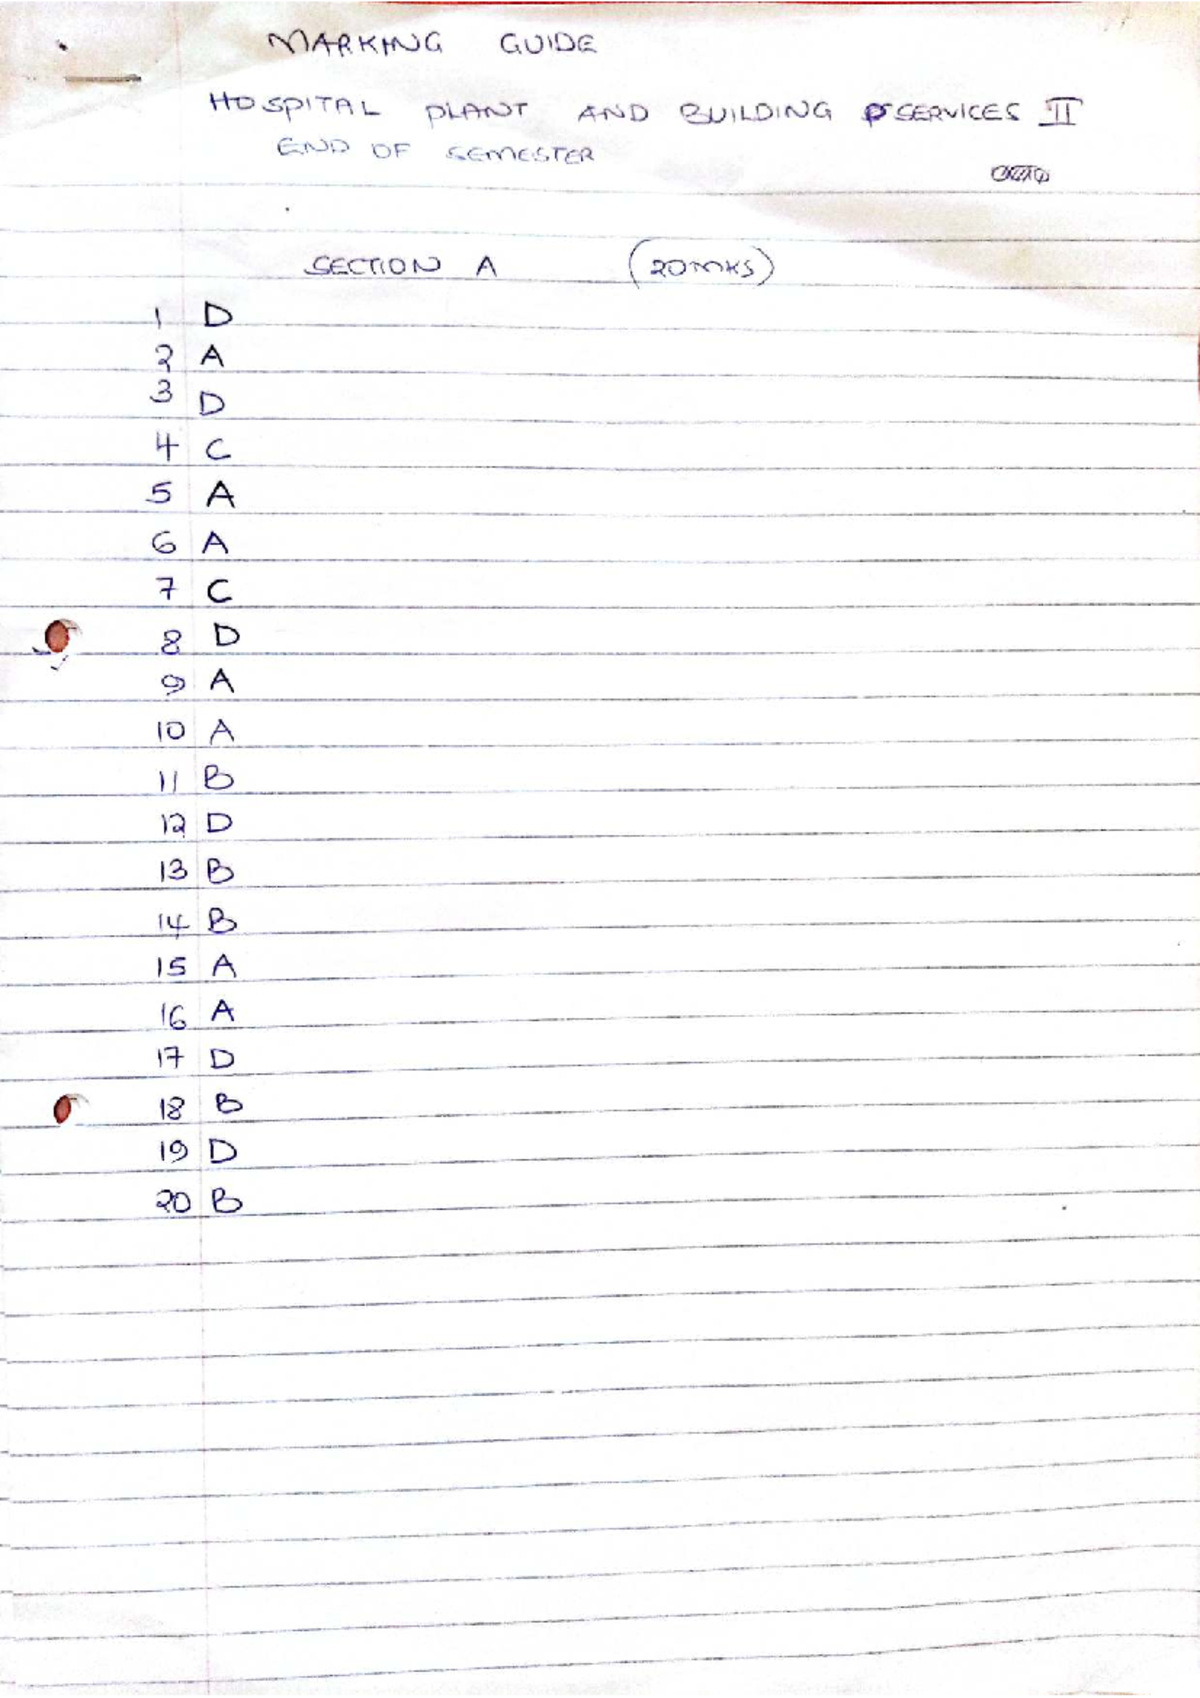 MARKING GUIDE
HOSPITAL PLANT AND BUILDING SERVICES II
END OF SEMESTER
SECTION A (20MKS)
1 D
2 A
3 D
4 C
5 A
6 A
7 C
8 D
9 A
10 A
11 B
12 D
13 B
14 B
15 A
16 A
17 D
18 B
19 D
20 B